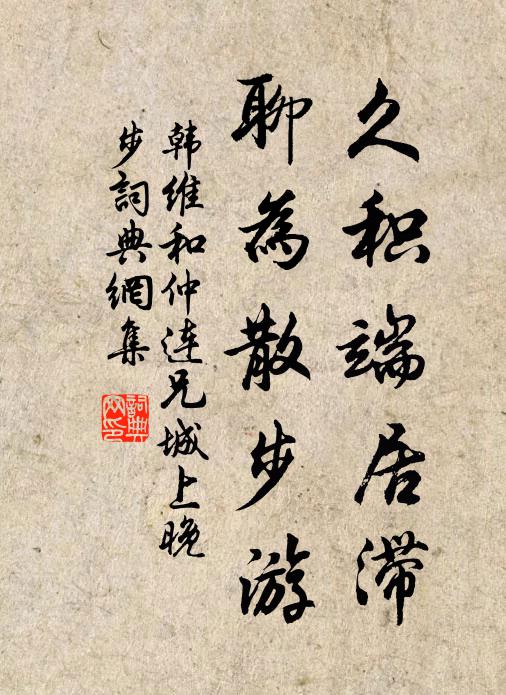 久积端居滞
聊為散步游
韩维和仲连兄城上晚
步詞典網集
詞典网印